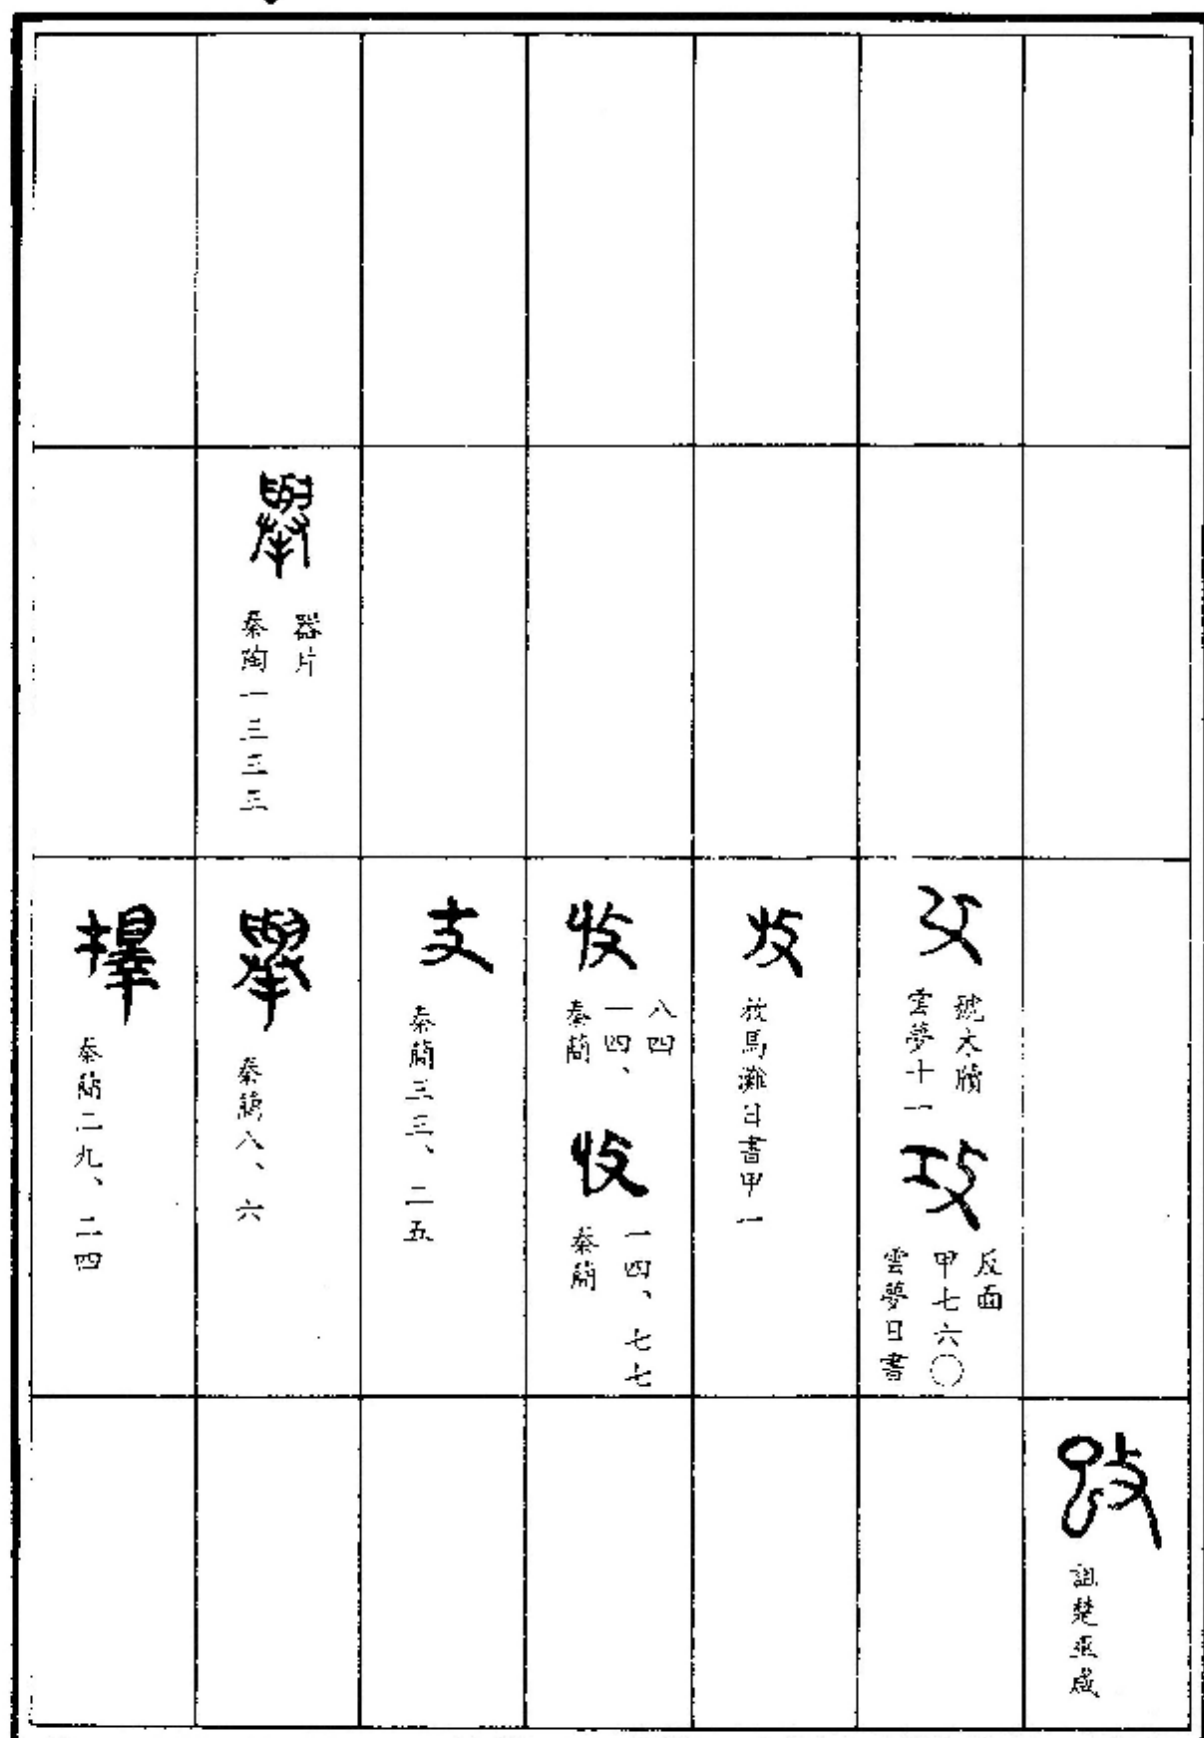 詛楚巫咸
攻
雲夢十一
號木牘
攻
雲夢日書
甲七六〇
反面
放馬灘日書甲一
收
秦簡
一四、
八四
收
秦簡
一四、七七
支
秦簡三三、二五
舉
秦陶一三三三
器片
舉
秦簡八、六
擇
秦簡二九、二四